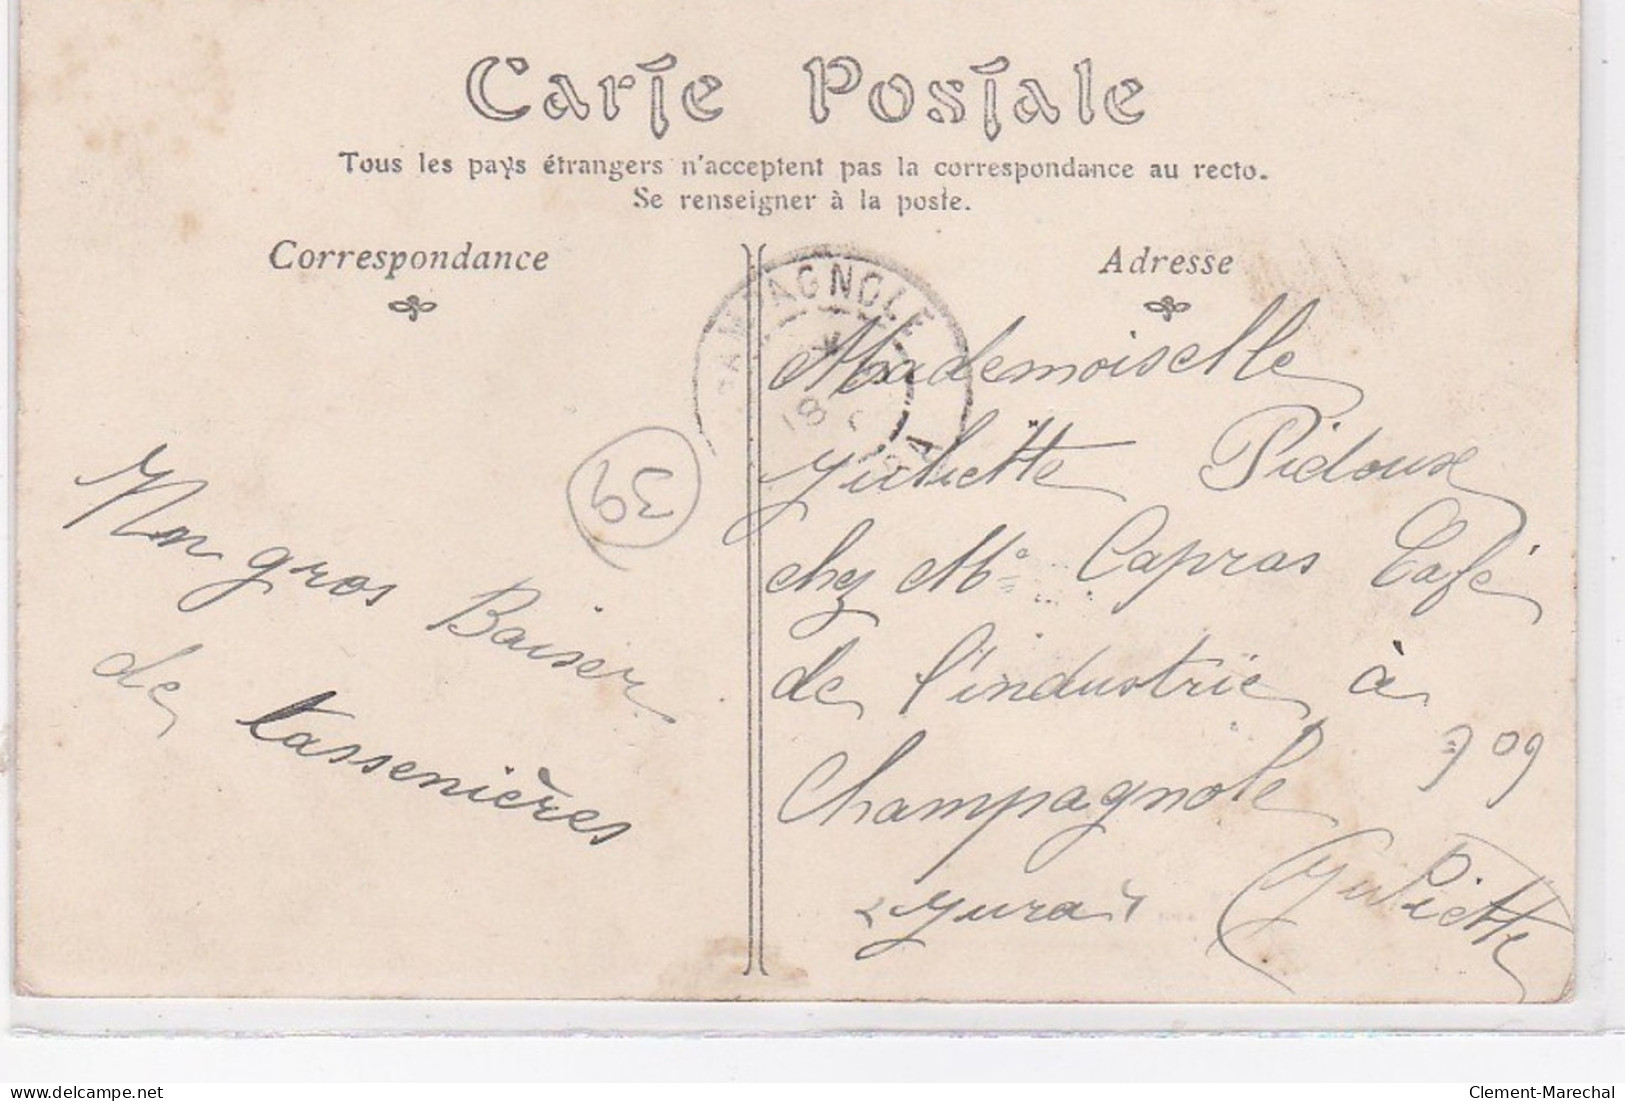 Carte Postale
Tous les pays étrangers n'acceptent pas la correspondance au recto.
Se renseigner à la poste.
Correspondance
Adresse
CHAMPAGNOLE
39
Mon gros Baiser
de tassenières
Mademoiselle
Juliette Pidoux
chez Mr Capras Café
de l'industrie à
Champagnole
Jura
909
Juliette
delcampe.net
Clement-Marechal